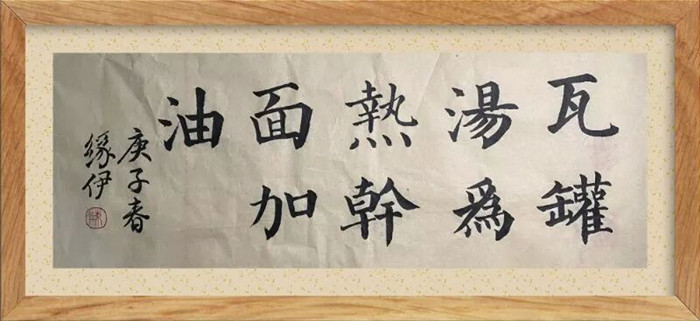 瓦罐
湯爲
熱幹
面加
油
庚子春
緣伊